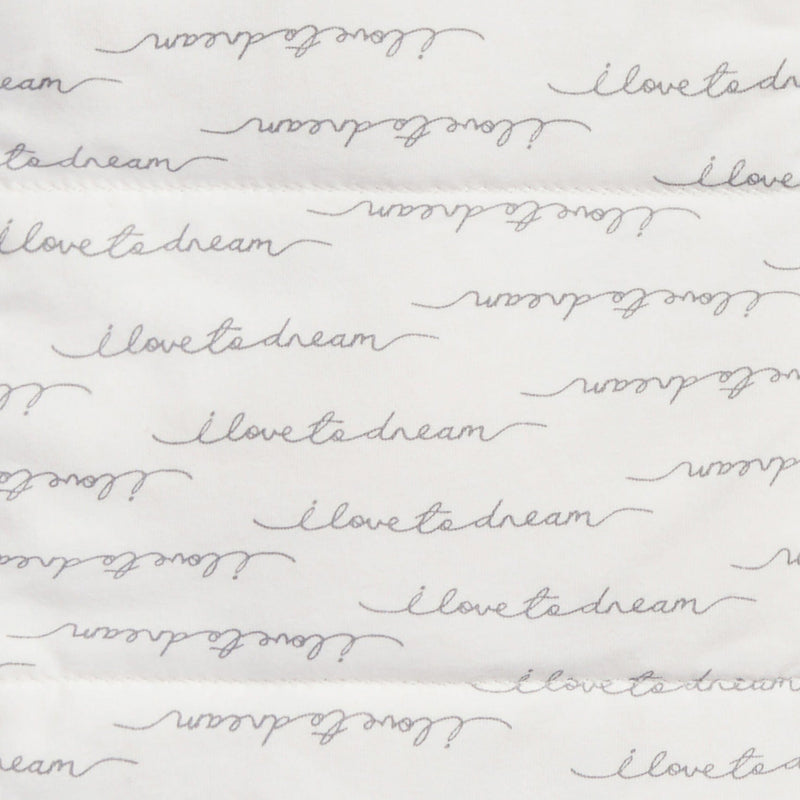 i love to dream
eam
i love to dr
i love to dream
to dream
i love
i love to dream
i love to dream
i love to dream
i love to dream
i l
ve to dream
i love to dream
i love to
dream
i love to dream
i love to drea
i love to dream
i love to dream
i love to dream
i love to dream
eam
i love to d